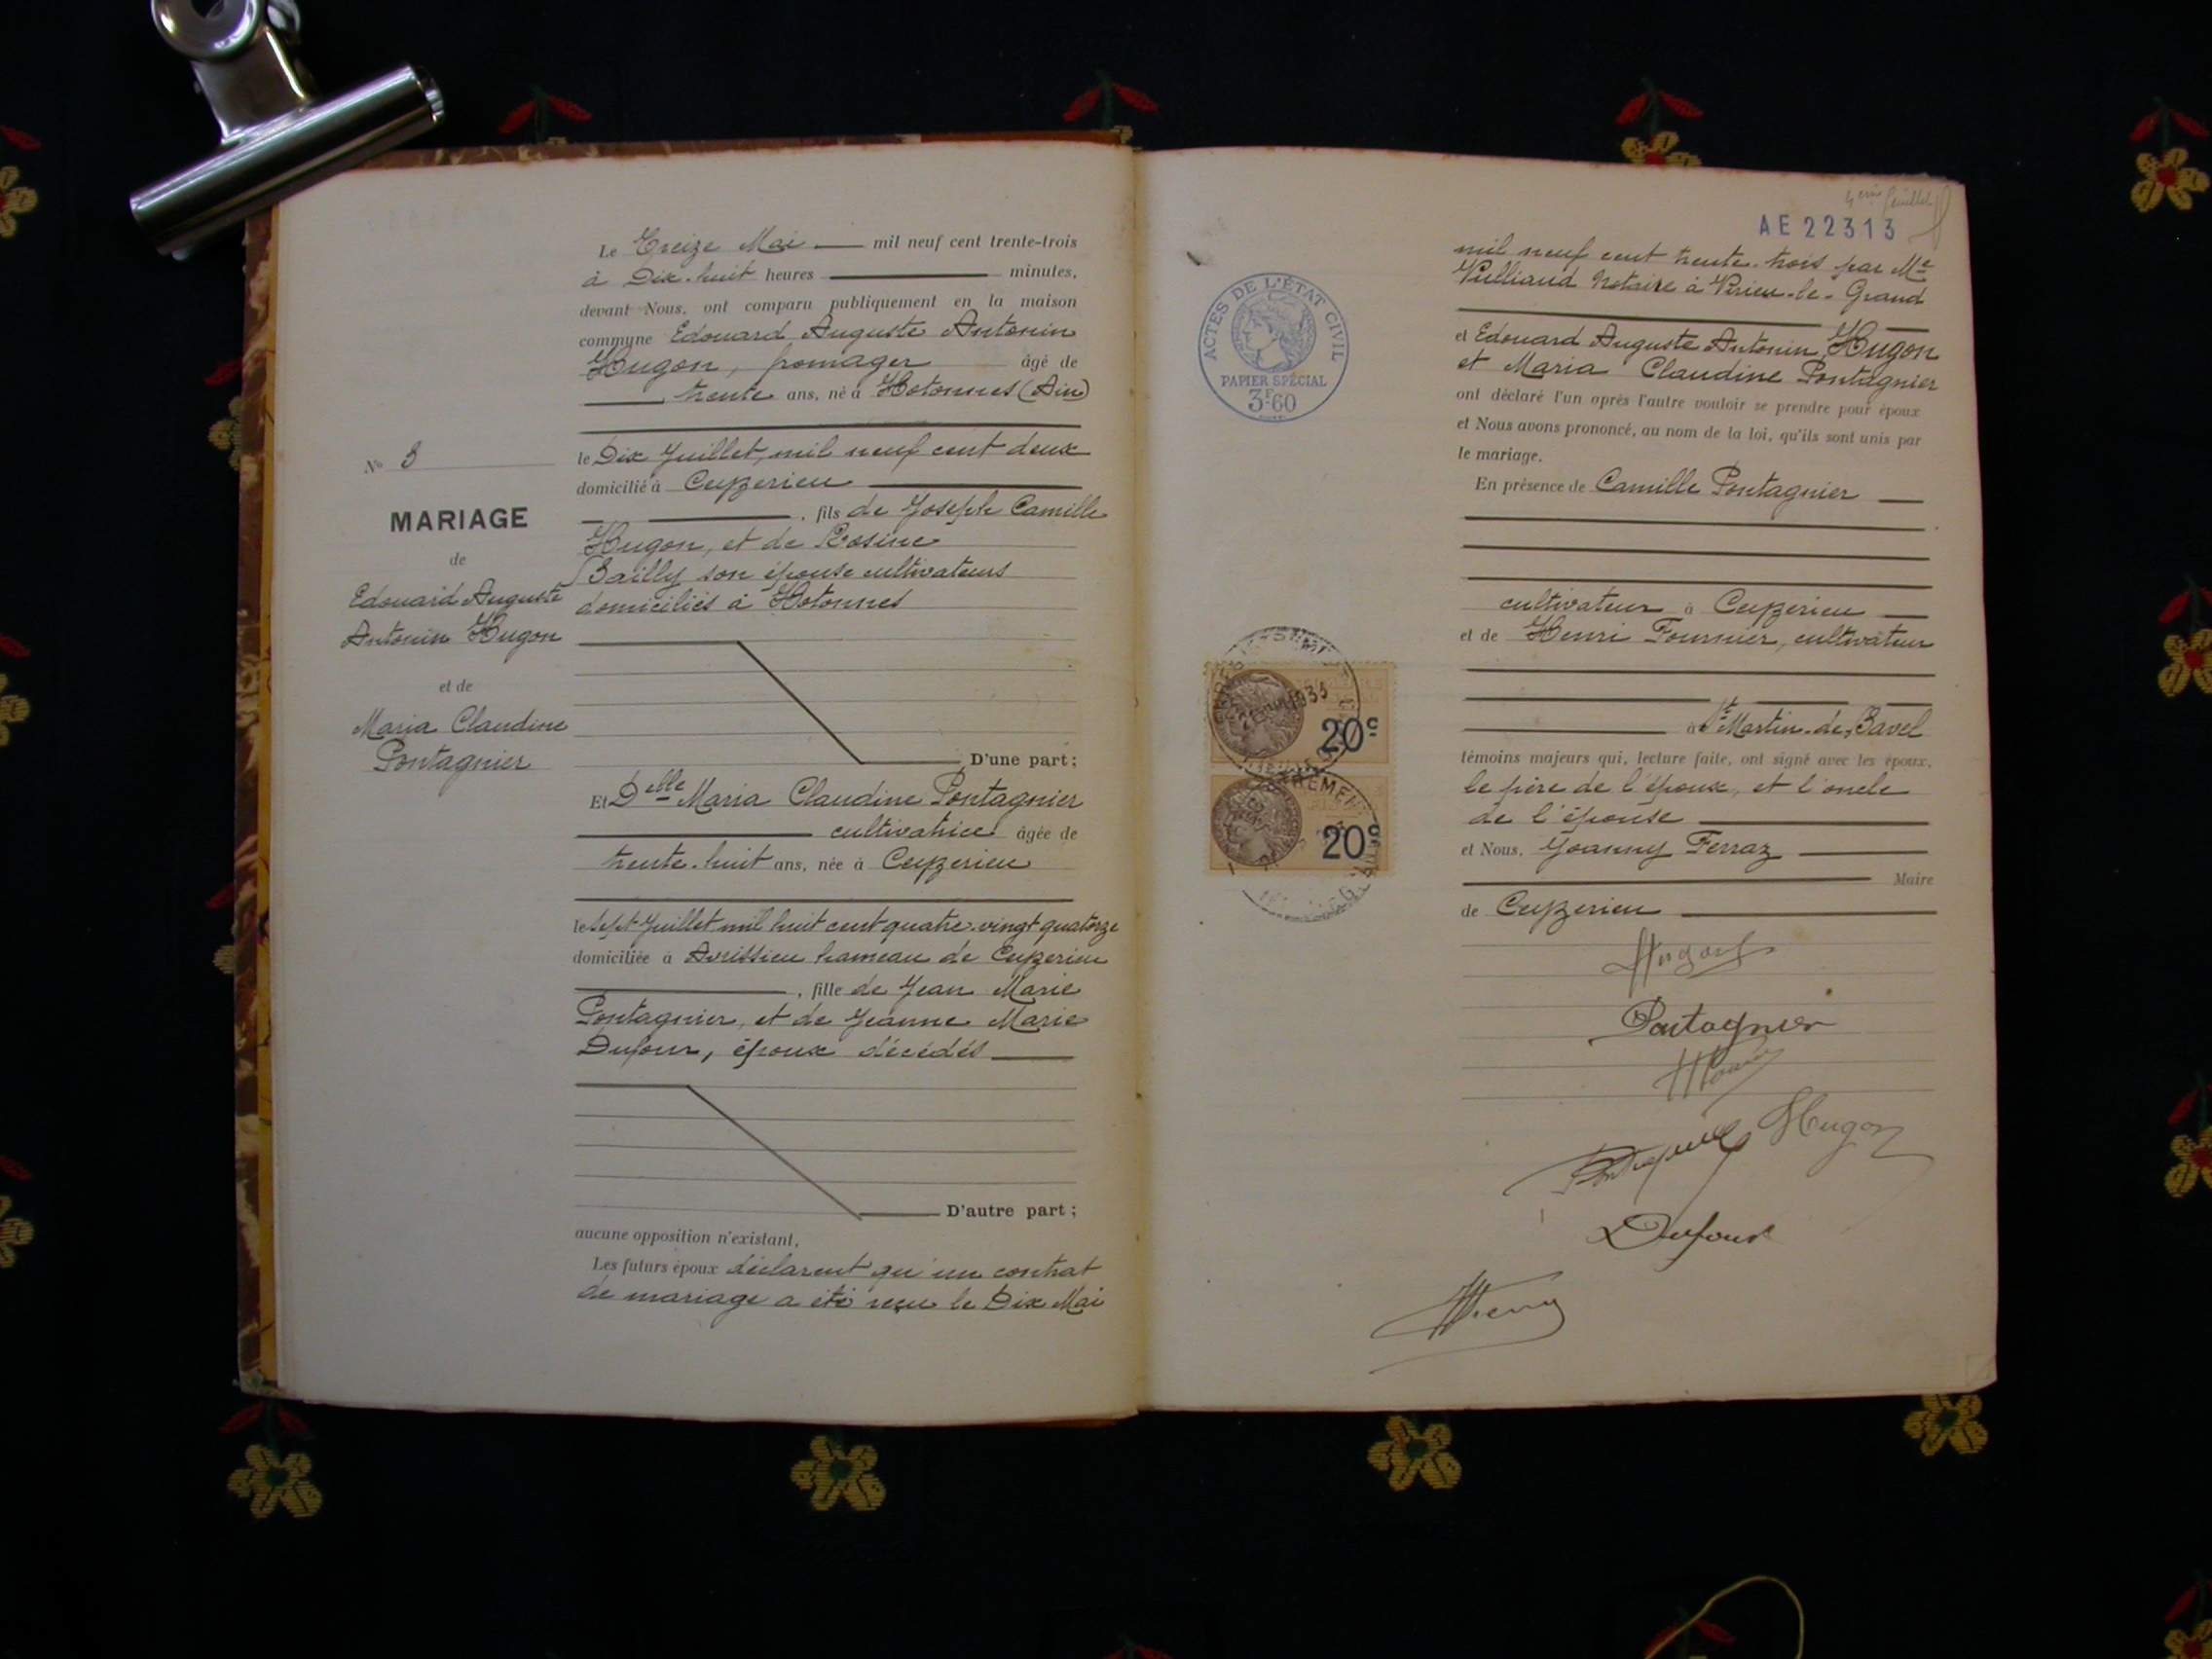 Le Treize Mai mil neuf cent trente-trois
à Dix-huit heures minutes,
devant Nous, ont comparu publiquement en la maison
commune Edouard Auguste Antonin
Hugon, fromager âgé de
trente ans, né à Hotonnes (Ain)
le Dix Juillet, mil neuf cent deux
domicilié à Ceyzerieu
, fils de Joseph Camille
Hugon, et de Rosine
Bailly son épouse cultivateurs
domiciliés à Hotonnes
D'une part ;
Et Delle Maria Claudine Pontagnier
cultivatrice âgée de
trente-huit ans, née à Ceyzerieu
le Sept Juillet mil huit cent quatre-vingt quatorze
domiciliée à Avrissieu hameau de Ceyzerieu
, fille de Jean Marie
Pontagnier, et de Jeanne Marie
Dufour, époux décédés
D'autre part ;
aucune opposition n'existant,
Les futurs époux déclarent qu'un contrat
de mariage a été reçu le Dix Mai
No 3
MARIAGE
de
Edouard Auguste
Antonin Hugon
et de
Maria Claudine
Pontagnier
feuillet
AE 22313
mil neuf cent trente-trois par Me
Vulliaud Notaire à Virieu-le-Grand
et Edouard Auguste Antonin Hugon
et Maria Claudine Pontagnier
ont déclaré l'un après l'autre vouloir se prendre pour époux
et Nous avons prononcé, au nom de la loi, qu'ils sont unis par
le mariage.
En présence de Camille Pontagnier
cultivateur à Ceyzerieu
et de Henri Fournier, cultivateur
à St Martin-de-Bavel
témoins majeurs qui, lecture faite, ont signé avec les époux,
le père de l'époux, et l'oncle
de l'épouse
et Nous, Joanny Ferraz
Maire
de Ceyzerieu
Hugon
Pontagnier
Hugon
Dufour
ACTES DE L'ÉTAT CIVIL
PAPIER SPÉCIAL
3F60
1933
20c
20c